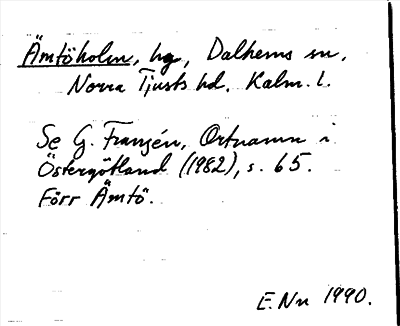 Ämtöholm, hg, Dalhems sn,
Norra Tjusts hd. Kalm. l.
Se G. Franzén, Ortnamn i
Östergötland (1982), s. 65.
Förr Ämtö.
E. Nn 1990.